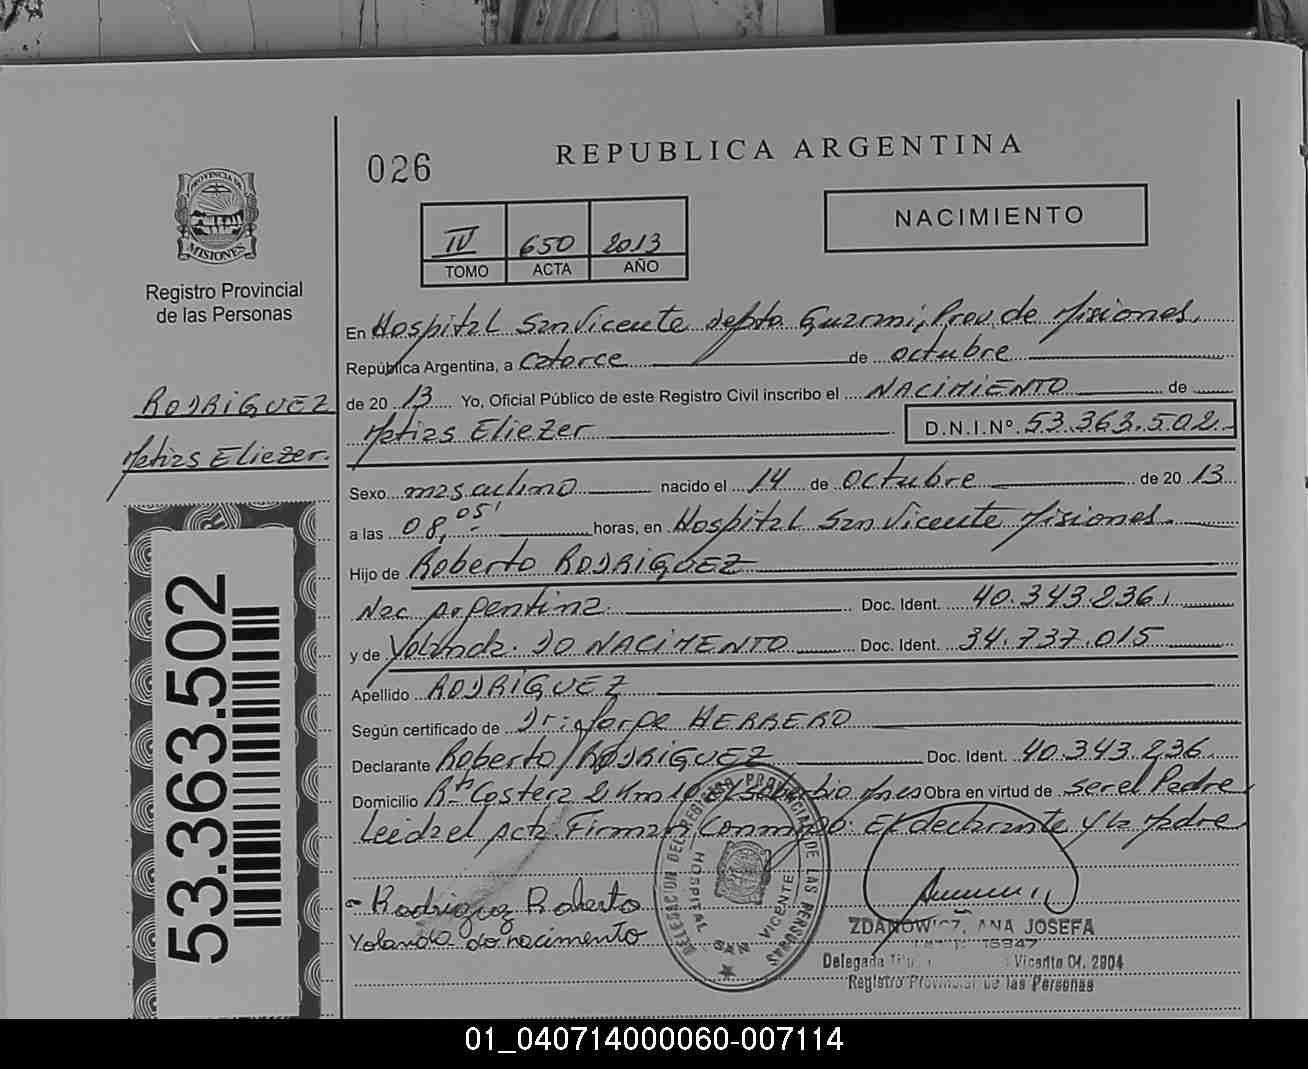 026
REPUBLICA ARGENTINA
NACIMIENTO
IV 650 2013
TOMO ACTA AÑO
PROVINCIA DE
MISIONES
Registro Provincial
de las Personas
RODRIGUEZ
Matias Eliezer.
53.363.502
En Hospital San Vicente depto Guarani, Prov. de Misiones.
República Argentina, a Catorce de octubre
de 2013 Yo, Oficial Público de este Registro Civil inscribo el NACIMIENTO de
Matias Eliezer D.N.I.Nº. 53.363.502.-
Sexo masculino nacido el 14 de Octubre de 2013
a las 08,05' horas, en Hospital San Vicente Misiones.
Hijo de Roberto RODRIGUEZ
Nac argentina. Doc. Ident. 40.343.236
y de Yolanda. DO NACIMENTO Doc. Ident. 34.737.015
Apellido RODRIGUEZ
Según certificado de Dr: Jorge HERRERO
Declarante Roberto RODRIGUEZ Doc. Ident. 40.343.236.
Domicilio Rta Costera 2 Km 10 Mnes Obra en virtud de ser el Padre
Leida el Acta. Firman Conmigo: El declarante y la Madre
Rodriguez Roberto
Yolanda do nacimento
DELEGACION DEL REGISTRO PROVINCIAL DE LAS PERSONAS
HOSPITAL SAN VICENTE
ZDANOWICZ, ANA JOSEFA
Delegada Vicente Of. 2904
Registro Provincial de las Personas
01_040714000060-007114